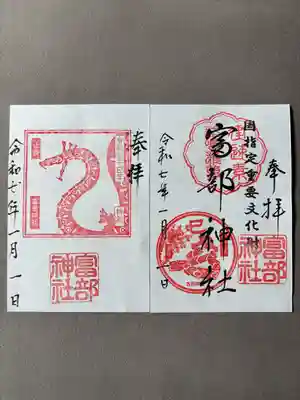 国指定重要文化財
奉拝
富部神社
令和七年一月一日
巳
富部
神社
奉拝
令和七年一月一日
富部
神社